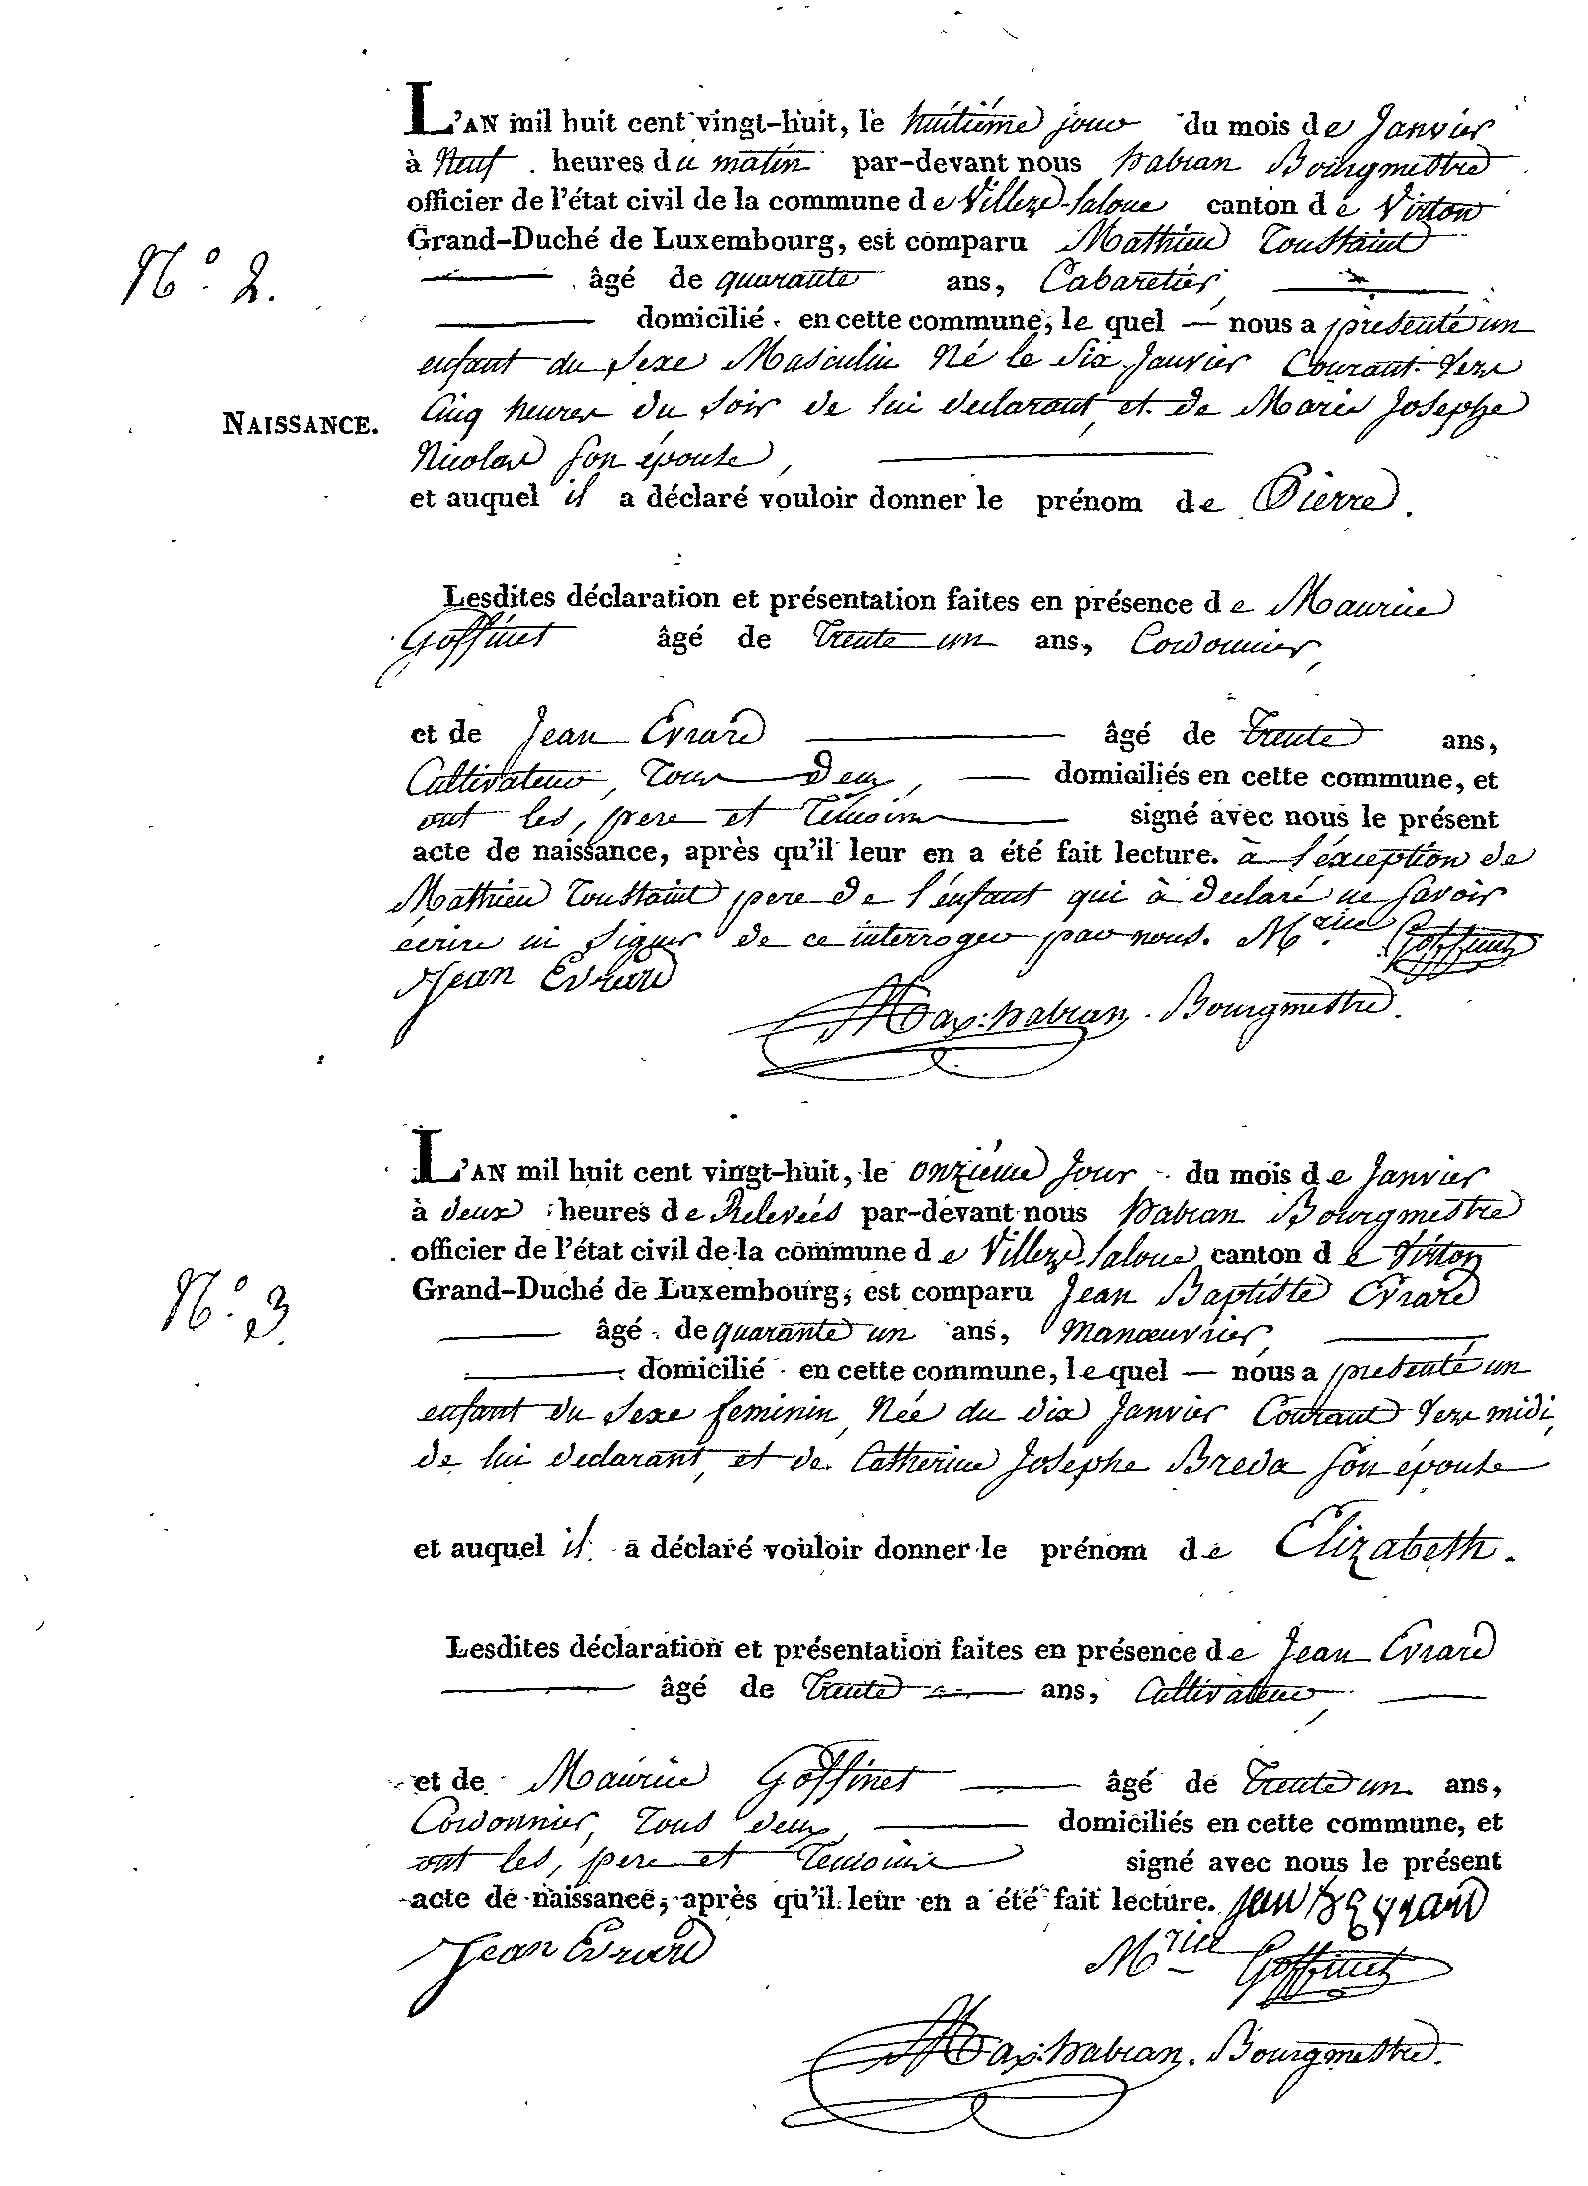 L'AN mil huit cent vingt-huit, le huitiéme jour du mois de Janvier
à Neuf heures du matin par-devant nous habran Bourgmestre
officier de l'état civil de la commune de Villers-laloue canton de Virton
Grand-Duché de Luxembourg, est comparu Mathieu Toustaint
N.° 2.
âgé de quarante ans, Cabaretier,
domicilié en cette commune, le quel — nous a présenté un
enfant du sexe Masculin Né le Six Janvier Courant vers
Cinq heures du soir de lui declarant, et de Marie Josephe
NAISSANCE.
Nicolas son épouse,
et auquel il a déclaré vouloir donner le prénom de Pierre.
Lesdites déclaration et présentation faites en présence de Maurice
Goffinet âgé de trente un ans, Cordonnier,
et de Jean Evrard âgé de trente ans,
Cultivateur, tous deux, domiciliés en cette commune, et
ont les, pere et temoins signé avec nous le présent
acte de naissance, après qu'il leur en a été fait lecture. à l'éxception de
Mathieu Toustaint pere de l'enfant qui à declaré ne savoir
écrire ni signer de ce interrogé par nous. Mrice Goffinet
Jean Evrard
Max: habran. Bourgmestre.
L'AN mil huit cent vingt-huit, le onziéme Jour du mois de Janvier
à deux heures de Relevées par-devant nous habran Bourgmestre
officier de l'état civil de la commune de Villers-laloue canton de Virton
Grand-Duché de Luxembourg, est comparu Jean Baptiste Evrard
N.° 3.
âgé de quarante un ans, Manœuvrier,
domicilié en cette commune, le quel — nous a présenté un
enfant du sexe feminin, Née du dix Janvier Courant vers midi,
de lui declarant, et de Catherine Josephe Breda son épouse
et auquel il a déclaré vouloir donner le prénom de Elizabeth.
Lesdites déclaration et présentation faites en présence de Jean Evrard
âgé de trente ans, Cultivateur,
et de Maurice Goffinet âgé de trente un ans,
Cordonnier, tous deux, domiciliés en cette commune, et
ont les, pere et temoins signé avec nous le présent
acte de naissance, après qu'il leur en a été fait lecture. Jean Evrard
Jean Evrard
Mrice Goffinet
Max: habran. Bourgmestre.